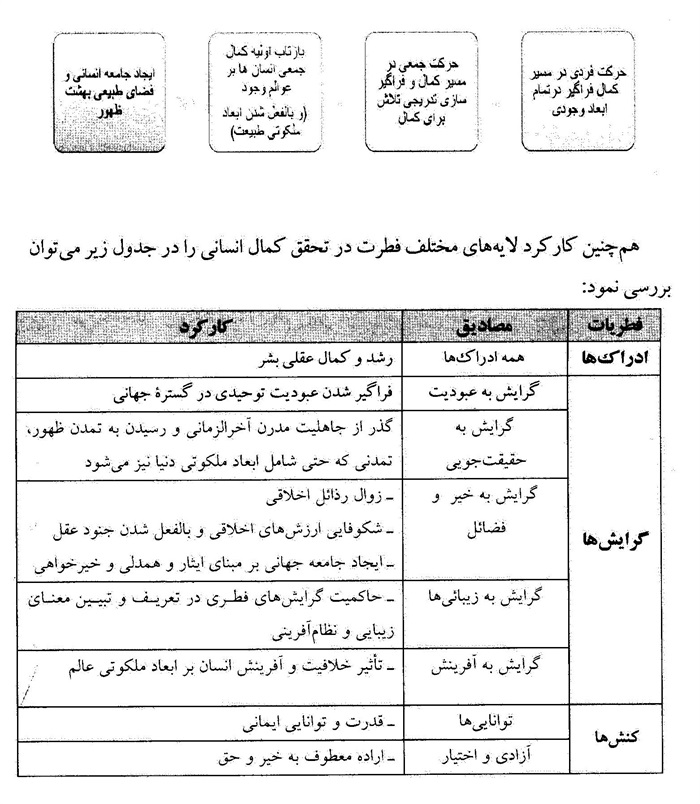 حرکت فردی در مسیر
کمال فراگیر در تمام
ابعاد وجودی
حرکت جمعی در
مسیر کمال و فراگیر
سازی تدریجی تلاش
برای کمال
بازتاب اولیه کمال
جمعی انسان ها بر
عوالم وجود
(و بالفعل شدن ابعاد
ملکوتی طبیعت)
ایجاد جامعه انسانی و
فضای طبیعی بهشت
ظهور
هم‌چنین کارکرد لایه‌های مختلف فطرت در تحقق کمال انسانی را در جدول زیر می‌توان
بررسی نمود:
فطریات مصادیق کارکرد
ادراک‌ها همه ادراک‌ها رشد و کمال عقلی بشر
گرایش‌ها
گرایش به عبودیت فراگیر شدن عبودیت توحیدی در گسترۀ جهانی
گرایش به
حقیقت‌جویی
گذر از جاهلیت مدرن آخرالزمانی و رسیدن به تمدن ظهور،
تمدنی که حتی شامل ابعاد ملکوتی دنیا نیز می‌شود
گرایش به خیر و
فضائل
ـ زوال رذائل اخلاقی
ـ شکوفایی ارزش‌های اخلاقی و بالفعل شدن جنود عقل
ـ ایجاد جامعه جهانی بر مبنای ایثار و همدلی و خیرخواهی
گرایش به زیبائی‌ها
ـ حاکمیت گرایش‌های فطری در تعریف و تبیین معنای
زیبایی و نظام‌آفرینی
گرایش به آفرینش ـ تأثیر خلاقیت و آفرینش انسان بر ابعاد ملکوتی عالم
کنش‌ها
توانایی‌ها ـ قدرت و توانایی ایمانی
آزادی و اختیار ـ اراده معطوف به خیر و حق